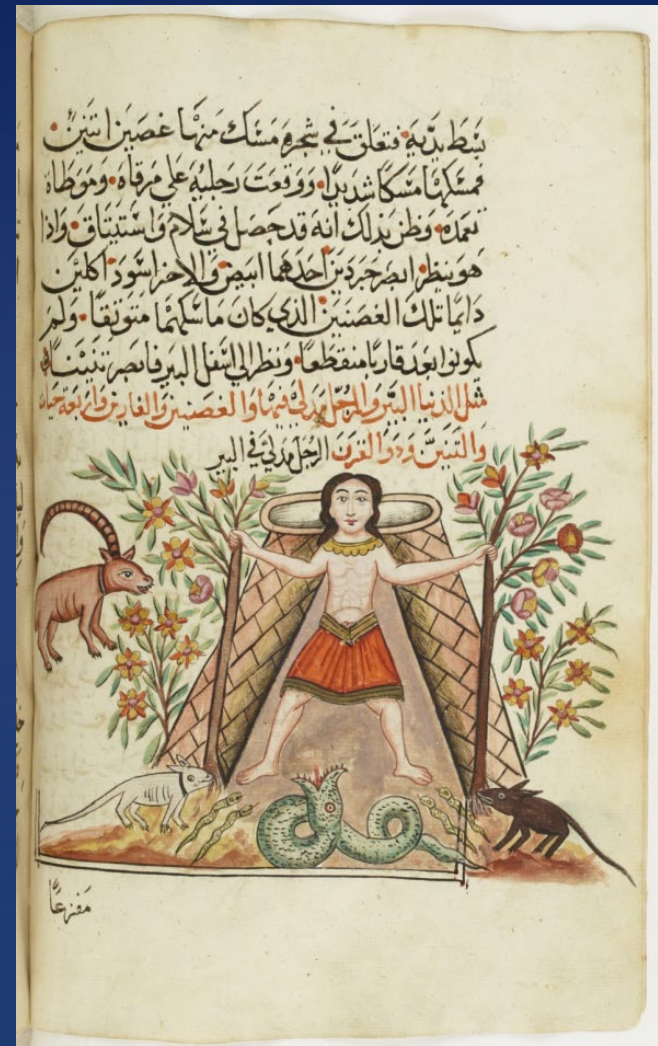 بسَط يدَيه فتعلق في شجره مسَك منها غصَين اثنين
فمسَكهما مسَكاً شديدا ووقعت رجليه علي مرقاه وموطاة
تعمده وظن بذلك انه قد حصَل في سَلام واسَتيثاق واذا
هو ينظر ابصر جردين احدهما ابيض والاخر اسَود اكلين
دايما تلك الغصنين الذي كان ماسَكهما متوثقا ولم
يكونوا بعد قاربا منقطعا ونظر الي اسَفل البير فابصر تنينا
مثل الدنيا البير والرجل مدلي فيها والغصنين والفارين واربعة حيات
والتنين وذو القرن الرجل مدلي في البير
مفزعًا